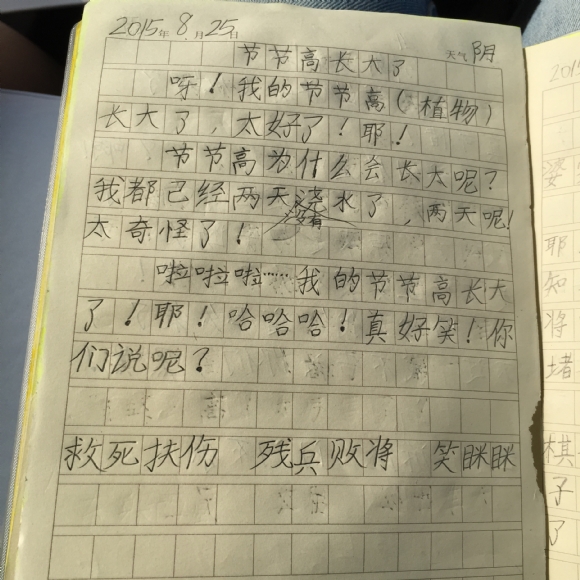 2015年8月25日 天气 阴
节节高长大了
呀！我的节节高（植物）
长大了，太好了！耶！
节节高为什么会长大呢？
我都已经两天没有浇水了，两天呢！
太奇怪了！
啦啦啦……我的节节高长大
了！耶！哈哈哈！真好笑！你
们说呢？
救死扶伤 残兵败将 笑眯眯
2015
婆
耶
知
将
堵
棋
子
了